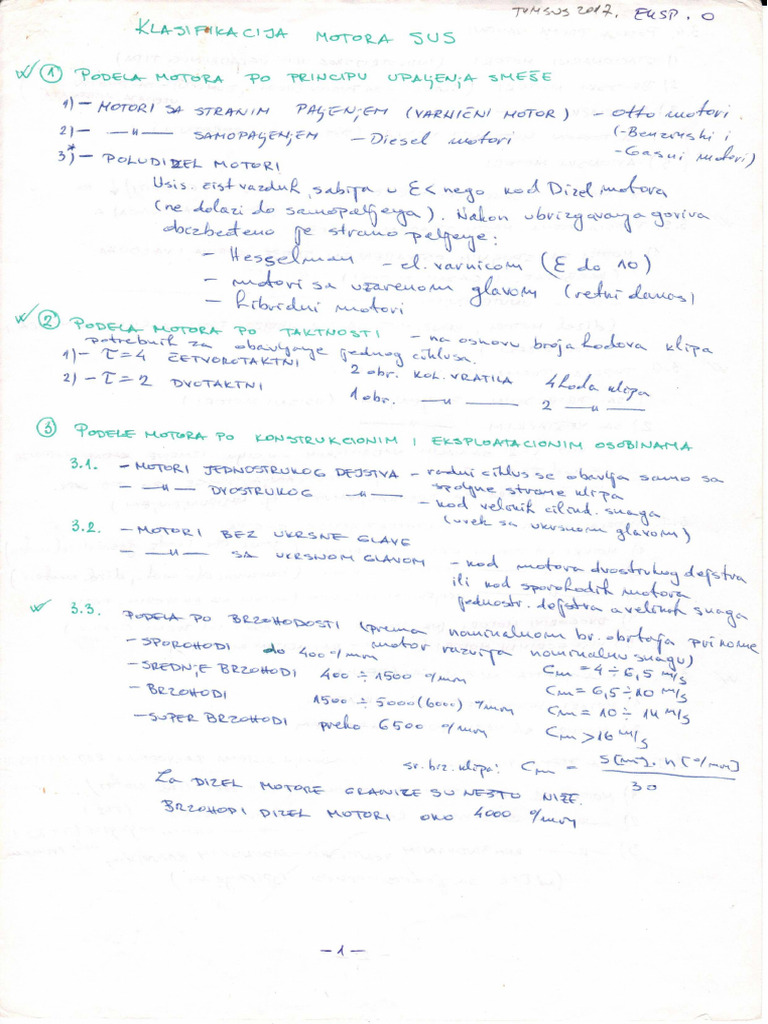 TUMSUS 2017. EKSP. 0
KLASIFIKACIJA MOTORA SUS
① PODELA MOTORA PO PRINCIPU UPALJENJA SMEŠE
1) – MOTORI SA STRANIM PALJENJEM (VARNIČNI MOTOR) – Otto motori.
2) – —"— SAMOPALJENJEM – Diesel motori (-Benzinski i
3)* – POLUDIZEL MOTORI -Gasni motori)
Usis. čist vazduh, sabija u ε< nego kod Dizel motora
(ne dolazi do samopaljenja). Nakon ubrizgavanja goriva
obezbeđeno je strano paljenje:
– Hesselman – el. varnicom (ε do 10)
– motori sa užarenom glavom (retki danas)
– hibridni motori
② PODELA MOTORA PO TAKTNOSTI – na osnovu broja hodova klipa
potrebnih za obavljanje jednog ciklusa.
1) – τ = 4 ČETVOROTAKTNI 2 obr. KOL. VRATILA 4 hoda klipa
2) – τ = 2 DVOTAKTNI 1 obr. —"— 2 —"—
③ PODELE MOTORA PO KONSTRUKCIONIM I EKSPLOATACIONIM OSOBINAMA
3.1. – MOTORI JEDNOSTRUKOG DEJSTVA – radni ciklus se obavlja samo sa
spoljne strane klipa
– —"— DVOSTRUKOG —"— – kod velikih cilind. snaga
(uvek sa ukrsnom glavom)
3.2. – MOTORI BEZ UKRSNE GLAVE
– —"— SA UKRSNOM GLAVOM – kod motora dvostrukog dejstva
ili kod sporohodih motora
jednostr. dejstva a velikih snaga
3.3. PODELA PO BRZOHODOSTI (prema nominalnom br. obrtaja pri kome
motor razvija nominalnu snagu)
– SPOROHODI do 400 o/min Cm = 4 ÷ 6,5 m/s
– SREDNJE BRZOHODI 400 ÷ 1500 o/min Cm = 6,5 ÷ 10 m/s
– BRZOHODI 1500 ÷ 5000 (6000) o/min Cm = 10 ÷ 14 m/s
– SUPER BRZOHODI preko 6500 o/min Cm > 16 m/s
sr. brz. klipa: Cm = S[m] · n[o/min] / 30
Za DIZEL MOTORE GRANICE SU NEŠTO NIŽE.
BRZOHODI DIZEL MOTORI OKO 4000 o/min
– 1 –